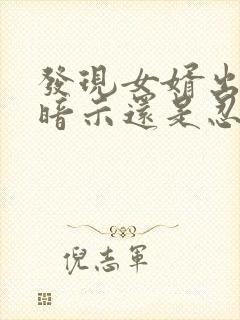 發現女婿出
暗示還是忍
倪志軍